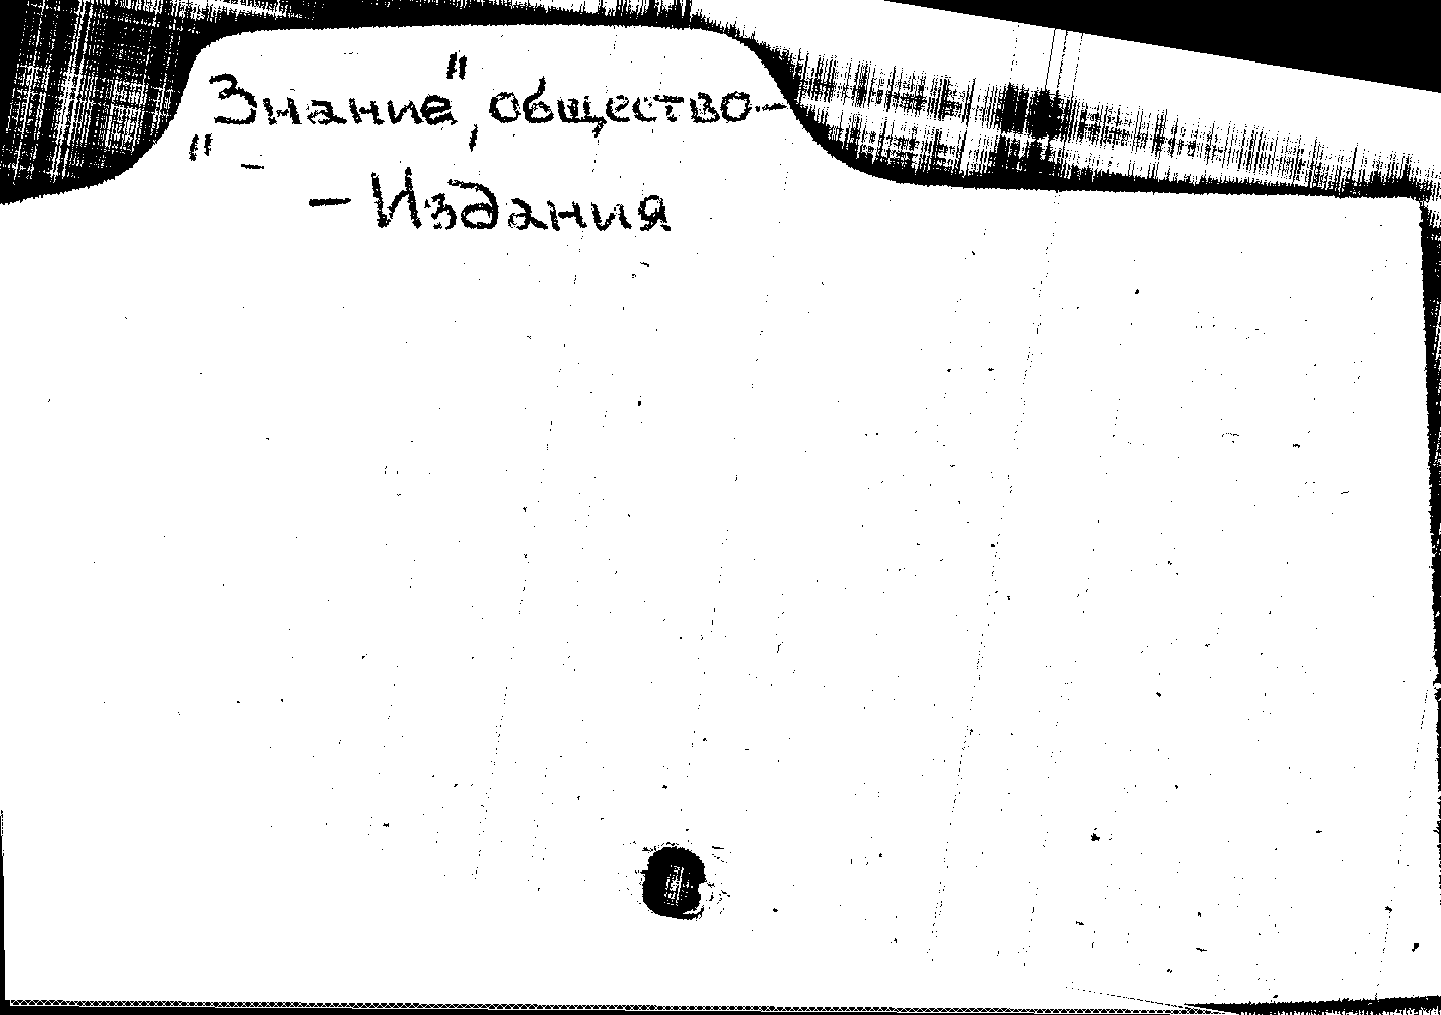 "Знание", общество-
- Издания